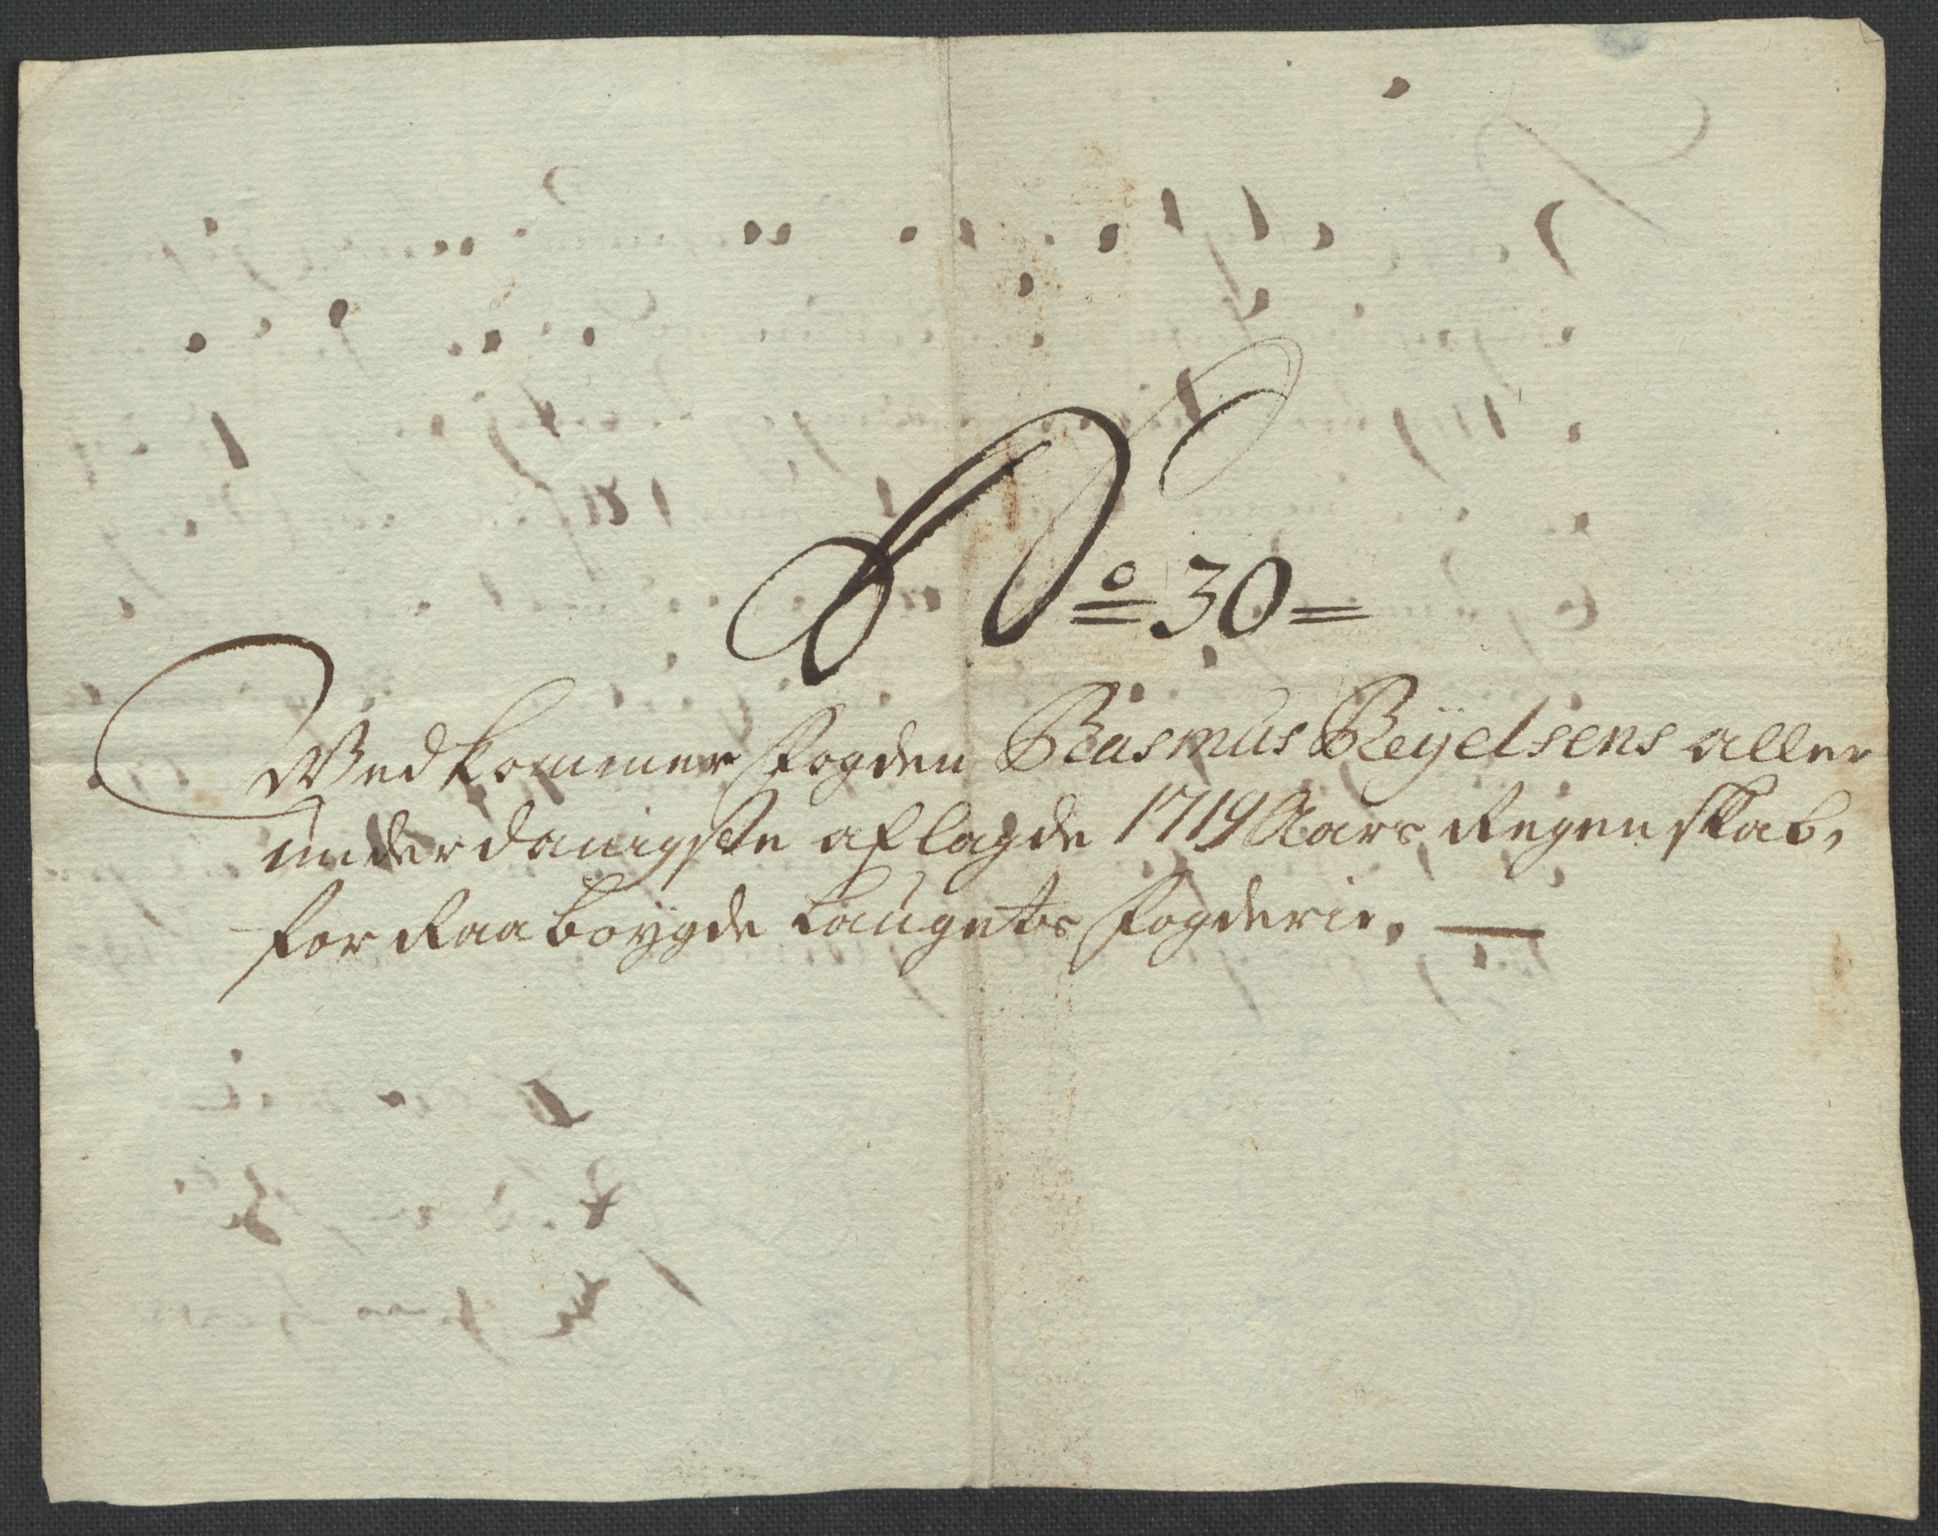 No 30
Vedkommer Fogden Rasmus Reyelsens aller
underdanigste aflagde 1719 Aars Regenskab,
for Raaboygde Laugets Fogderie.